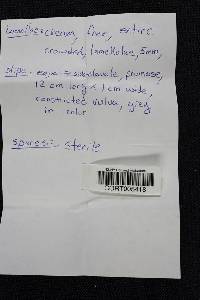 lamellae: cream, free, entire
crowded, lamellulae, 5mm,
stipe: equal to subclavate, pruinose,
12 cm long x 1 cm wide,
constricted volva, grey
in color
spores:- sterile
CORT006418